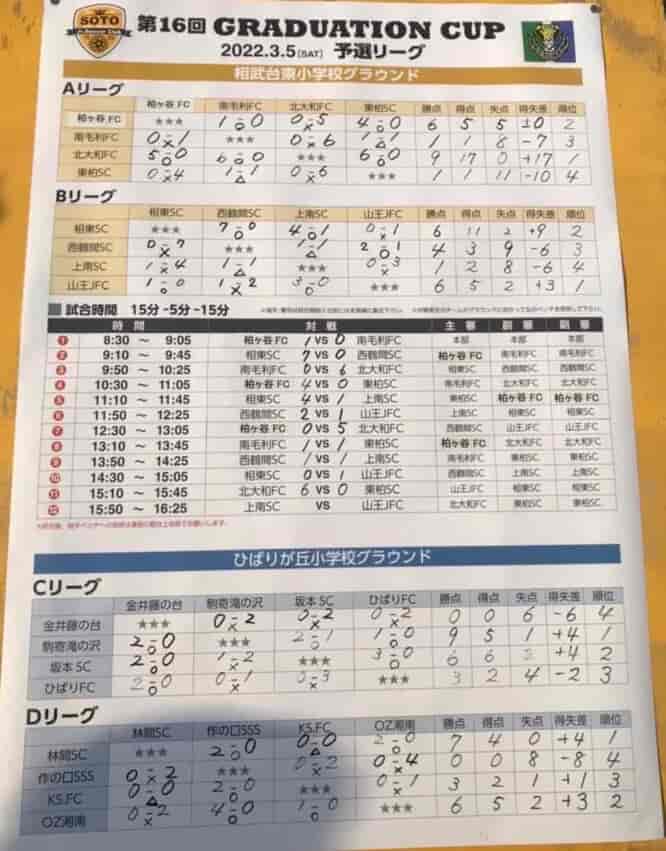 SOTO
第16回 GRADUATION CUP
2022.3.5(SAT) 予選リーグ
相武台東小学校グラウンド
Aリーグ
柏ヶ谷 FC 南毛利FC 北大和FC 東柏SC 勝点 得点 失点 得失差 順位
柏ヶ谷 FC ★★★ 1-0 ○ 0-5 × 4-0 ○ 6 5 5 ±0 2
南毛利FC 0-1 × ★★★ 0-6 × 1-1 △ 1 1 8 -7 3
北大和FC 5-0 ○ 6-0 ○ ★★★ 6-0 ○ 9 17 0 +17 1
東柏SC 0-4 × 1-1 △ 0-6 × ★★★ 1 1 11 -10 4
Bリーグ
相東SC 西鶴間SC 上南SC 山王JFC 勝点 得点 失点 得失差 順位
相東SC ★★★ 7-0 ○ 4-1 ○ 0-1 × 6 11 2 +9 2
西鶴間SC 0-7 × ★★★ 1-1 △ 2-1 ○ 4 3 9 -6 3
上南SC 1-4 × 1-1 △ ★★★ 0-3 × 1 2 8 -6 4
山王JFC 1-0 ○ 1-2 × 3-0 ○ ★★★ 6 5 2 +3 1
試合時間 15分-5分-15分
時間 対戦 主審 副審 副審
1 8:30 ～ 9:05 柏ヶ谷FC 1 VS 0 南毛利FC 本部 本部 本部
2 9:10 ～ 9:45 相東SC 7 VS 0 西鶴間SC 柏ヶ谷 FC 南毛利FC 南毛利FC
3 9:50 ～ 10:25 南毛利FC 0 VS 6 北大和FC 相東SC 西鶴間SC 西鶴間SC
4 10:30 ～ 11:05 柏ヶ谷FC 4 VS 0 東柏SC 南毛利FC 北大和FC 北大和FC
5 11:10 ～ 11:45 相東SC 4 VS 1 上南SC 東柏SC 柏ヶ谷 FC 柏ヶ谷 FC
6 11:50 ～ 12:25 西鶴間SC 2 VS 1 山王JFC 上南SC 相東SC 相東SC
7 12:30 ～ 13:05 柏ヶ谷FC 0 VS 5 北大和FC 西鶴間SC 山王JFC 山王JFC
8 13:10 ～ 13:45 南毛利FC 1 VS 1 東柏SC 柏ヶ谷 FC 北大和FC 北大和FC
9 13:50 ～ 14:25 西鶴間SC 1 VS 1 上南SC 南毛利FC 東柏SC 東柏SC
10 14:30 ～ 15:05 相東SC 0 VS 1 山王JFC 西鶴間SC 上南SC 上南SC
11 15:10 ～ 15:45 北大和FC 6 VS 0 東柏SC 山王JFC 相東SC 相東SC
12 15:50 ～ 16:25 上南SC VS 山王JFC 北大和FC 東柏SC 東柏SC
ひばりが丘小学校グラウンド
Cリーグ
金井藤の台 駒寄滝の沢 坂本 SC ひばりFC 勝点 得点 失点 得失差 順位
金井藤の台 ★★★ 0-2 × 0-2 × 0-2 × 0 0 6 -6 4
駒寄滝の沢 2-0 ○ ★★★ 2-1 ○ 1-0 ○ 9 5 1 +4 1
坂本 SC 2-0 ○ 1-2 × ★★★ 3-0 ○ 6 6 2 +4 2
ひばりFC 2-0 ○ 0-1 × 0-3 × ★★★ 3 2 4 -2 3
Dリーグ
林間SC 作の口SSS KS.FC OZ湘南 勝点 得点 失点 得失差 順位
林間SC ★★★ 2-0 ○ 0-0 △ 2-0 ○ 7 4 0 +4 1
作の口SSS 0-2 × ★★★ 0-2 × 0-4 × 0 0 8 -8 4
KS.FC 0-0 △ 2-0 ○ ★★★ 0-1 × 3 2 1 +1 3
OZ湘南 0-2 × 4-0 ○ 1-0 ○ ★★★ 6 5 2 +3 2